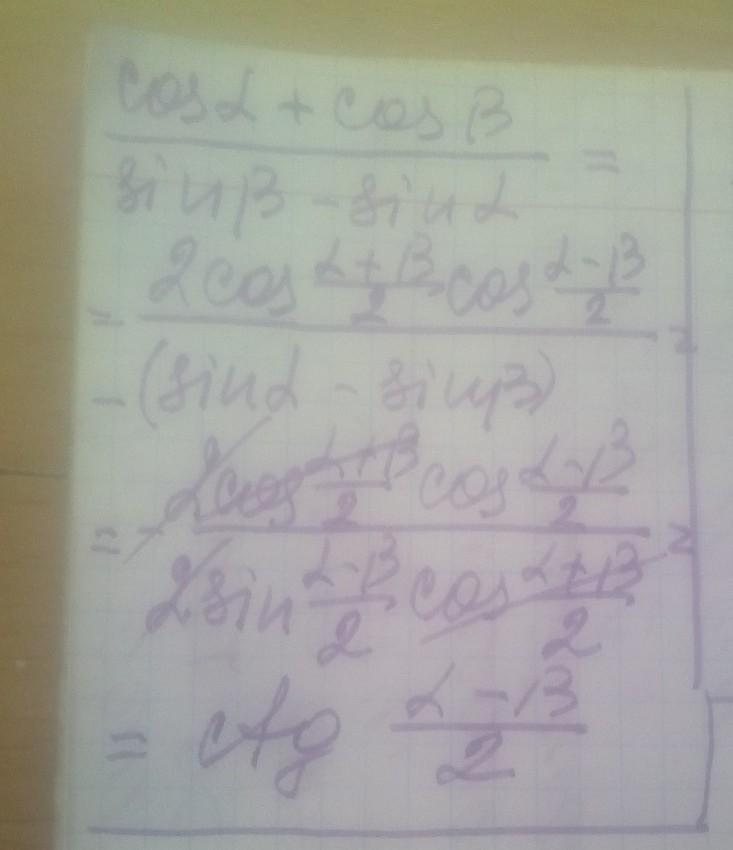 cosα + cosβ
=
sinβ - sinα
2cos α+β/2 cos α-β/2
= =
-(sinα - sinβ)
2cos α+β/2 cos α-β/2
= - =
2sin α-β/2 cos α+β/2
= ctg α-β/2